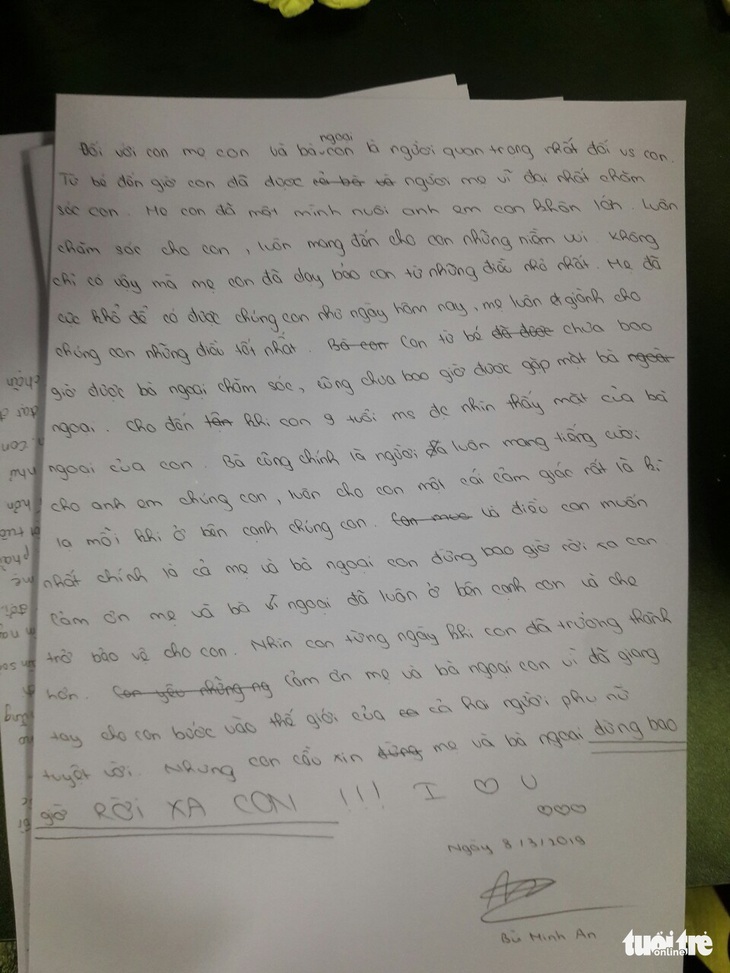 Đối với con mẹ con và bà ngoại con là người quan trọng nhất đối vs con.
Từ bé đến giờ con đã được là bà và người mẹ vĩ đại nhất chăm
sóc con. Mẹ con đã một mình nuôi anh em con khôn lớn. Luôn
chăm sóc cho con, luôn mang đến cho con những niềm vui. Không
chỉ có vậy mà mẹ con đã dạy bảo con từ những điều nhỏ nhất. Mẹ đã
cực khổ để có được chúng con như ngày hôm nay, mẹ luôn giành cho
chúng con những điều tốt nhất. Bà con Con từ bé đã được chưa bao
giờ được bà ngoại chăm sóc, cũng chưa bao giờ được gặp mặt bà ngoại
ngoại. Cho đến khi con 9 tuổi mẹ đc nhìn thấy mặt của bà
ngoại của con. Bà cũng chính là người đã luôn mang tiếng cười
cho anh em chúng con, luôn cho con một cái cảm giác rất là kì
lạ mỗi khi ở bên cạnh chúng con. Con muo và điều con muốn
nhất chính là cả mẹ và bà ngoại con đừng bao giờ rời xa con
Cảm ơn mẹ và bà ngoại đã luôn ở bên cạnh con và che
trở bảo vệ cho con. Nhìn con từng ngày khi con đã trưởng thành
hơn. Con yêu những ng cảm ơn mẹ và bà ngoại con vì đã giang
tay cho con bước vào thế giới của cả hai người phụ nữ
tuyệt vời. Nhưng con cầu xin đừng mẹ và bà ngoại đừng bao
giờ RỜI XA CON !!! I ♡ U
♡♡♡
Ngày 8/3/2019
Bùi Minh An
tuổi trẻ
online